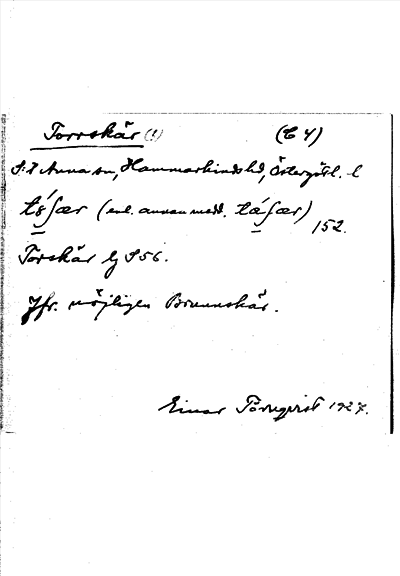 Torrskär (1) (C4)
S:t Anna sn, Hammarkinds hd, Östergötl. l
(enl. annan medd. ) 152.
Torskär Ljs 56.
Jfr. möjligen Brunnskär.
Einar Törnqvist 1927.